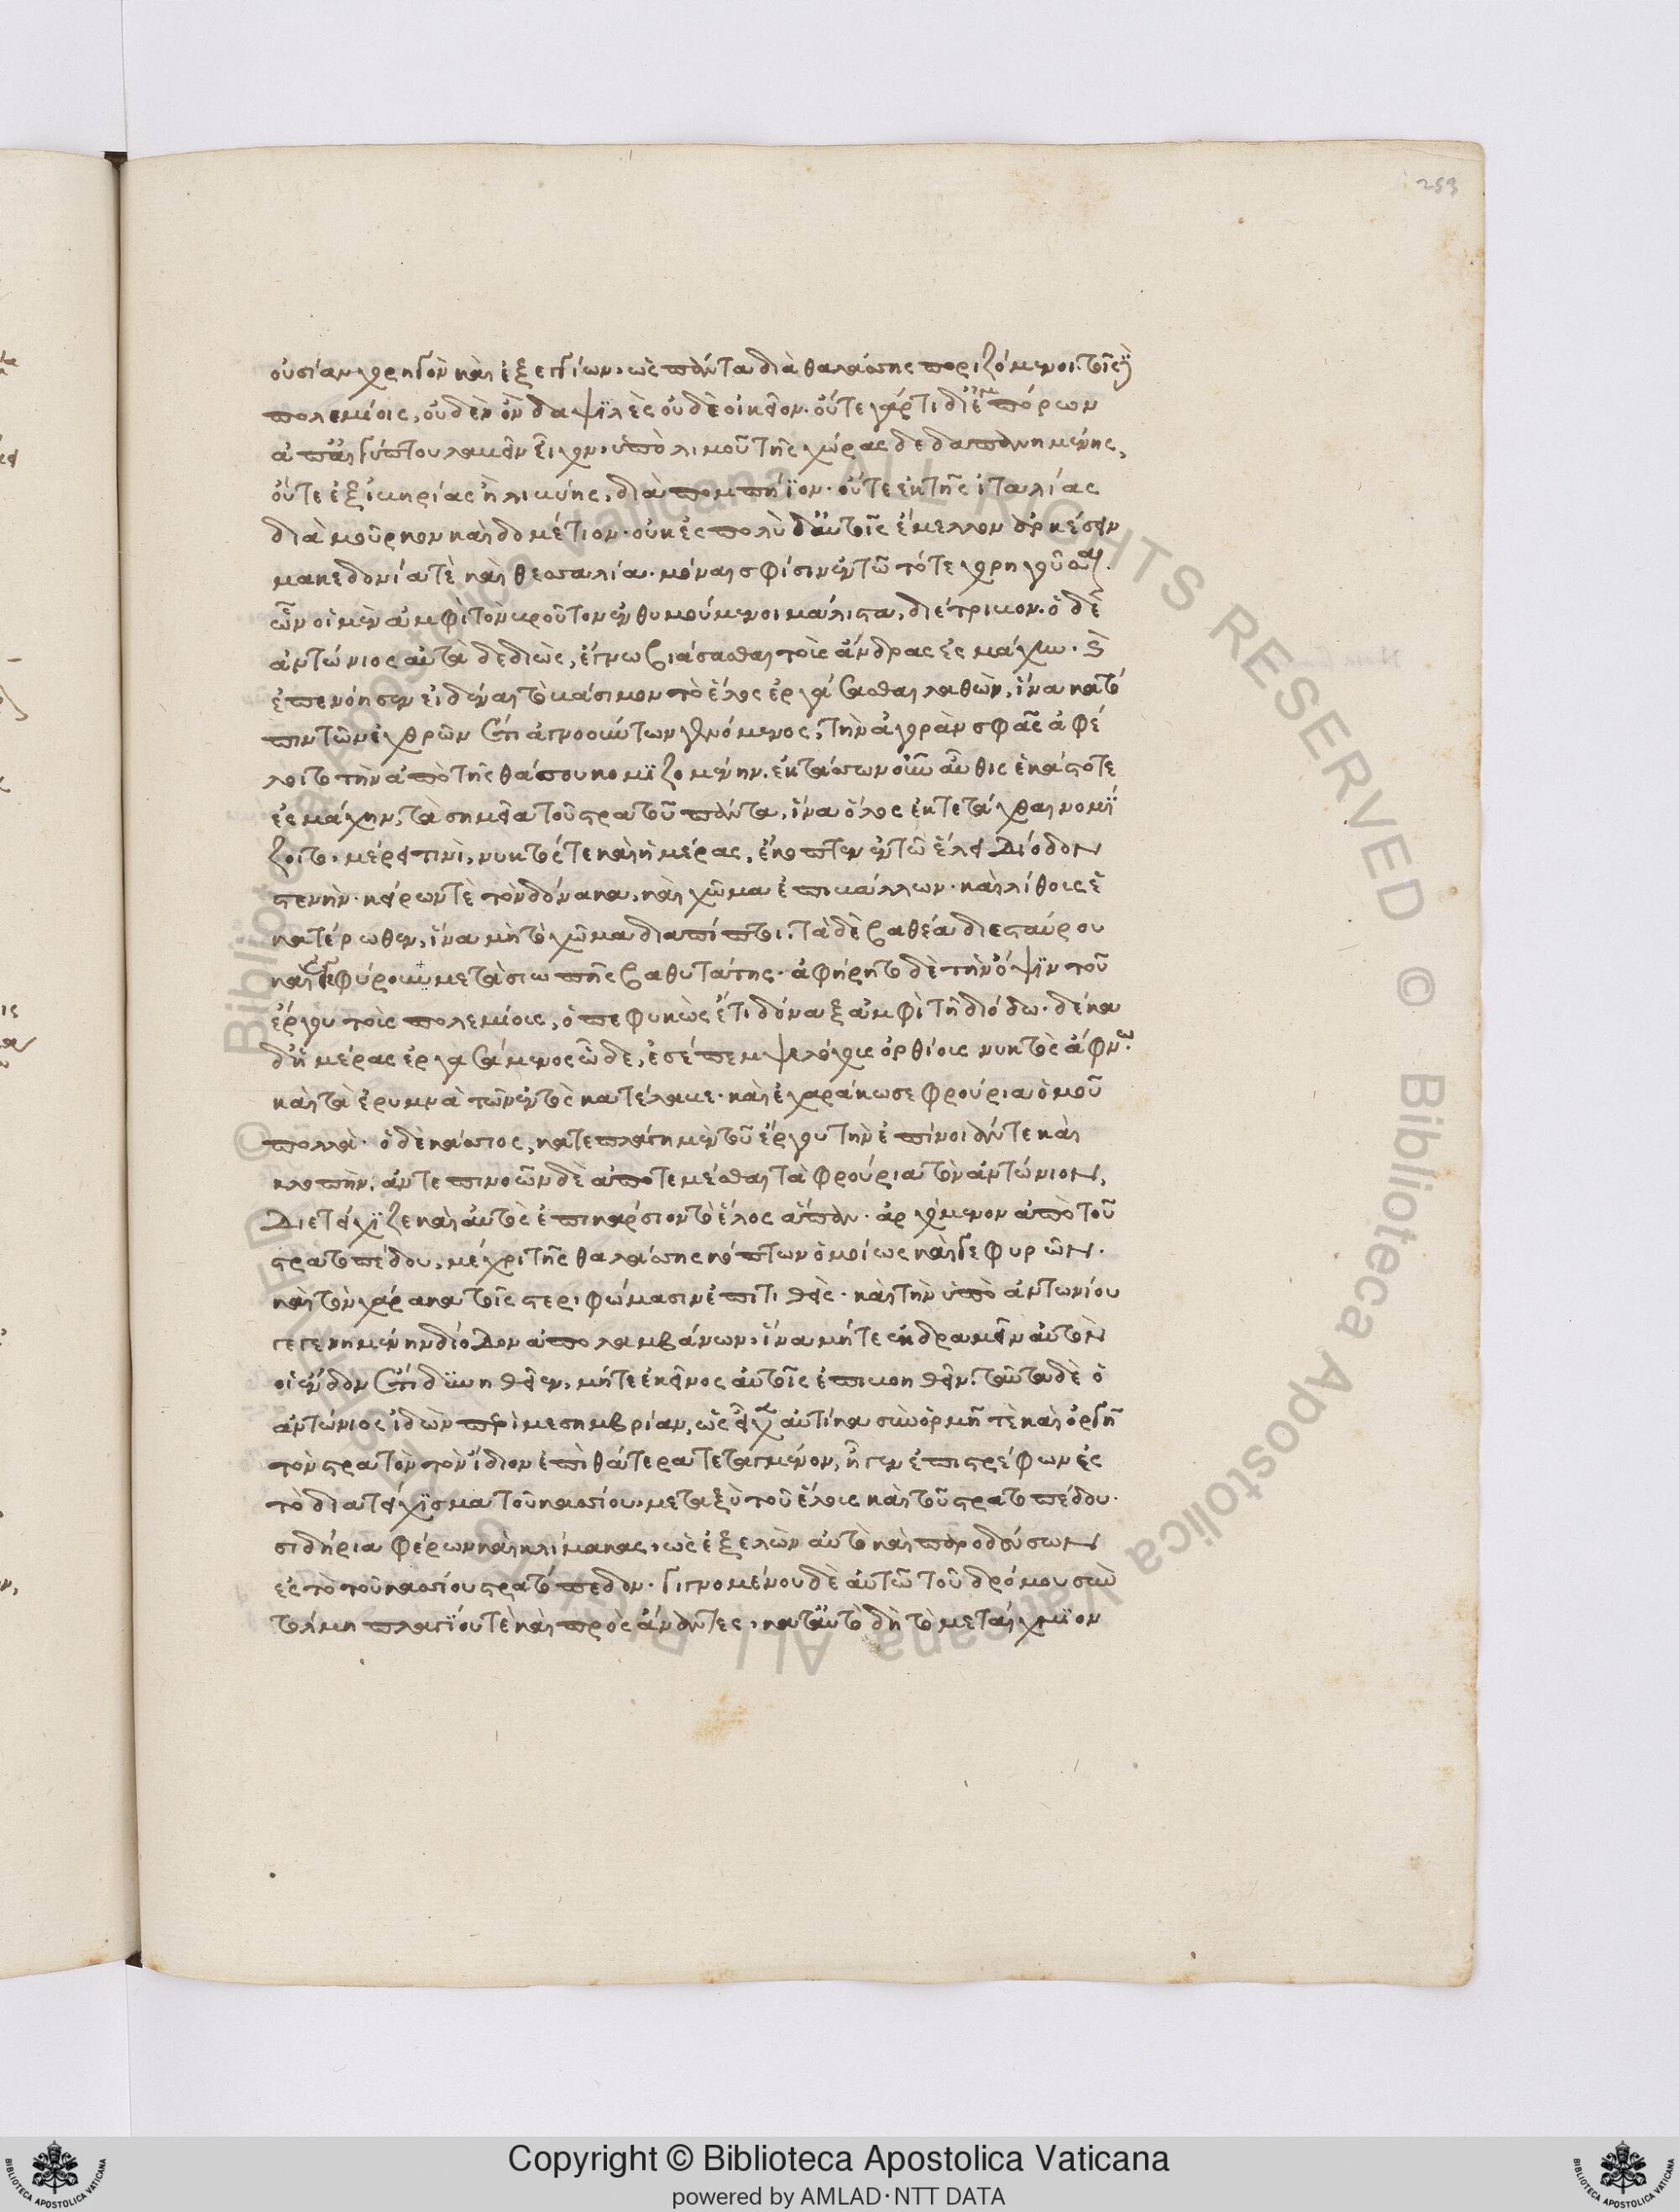 οὐσίαν χρηστὸν καὶ ἐξ ἐγγίων, ὡς πάντα διὰ θαλάσσης ποριζόμενοι. τοῖς δὲ
πολεμίοις, οὐδὲν ὂν δαψϊλὲς οὐδὲ οἰκεῖον. οὔτε γάρ τι δι' ἐμπόρων
ἀπ' αἰγύπτου λαβεῖν εἶχον, ὑπὸ λιμοῦ τῆς χώρας δεδαπανημένης,
οὔτε ἐξ ἰβηρίας ἢ λιβύης, διὰ πομπήϊον. οὔτε ἐκ τῆς ἰταλίας
διὰ μοῦρκον καὶ δομέτιον. οὐκ ἐς πολὺ δ' αὐτοῖς ἔμελλον ἀρκέσειν
μακεδονία τὲ καὶ θεσσαλία. μόναι σφίσιν ἐν τῶ τότε χρηγοῦσαι.
ὧν οἱ μὲν ἀμφὶ τὸν βροῦτον ἐνθυμούμενοι μάλιστα, διέτριβον. ὁ δὲ
ἀντώνιος αὐτὰ δεδιὼς, ἔγνω βιάσασθαι τοὺς ἄνδρας ἐς μάχην. καὶ
ἐπενόησεν εἰ δύναιτο βάσιμον τὸ ἕλος ἐργάσασθαι λαθὼν, ἵνα κατό
πιν τῶν ἐχθρῶν ἔτι ἀγνοούντων γενόμενος, τὴν ἀγορὰν σφᾶς ἀφέ
λοιτο τὴν ἀπὸ τῆς θάσου κομϊζομένην. ἐκτάσσων οὖν αὖθις ἑκάστοτε
ἐς μάχην, τὰ σημεῖα τοῦ στρατοῦ πάντα, ἵνα ὅλος ἐκτετάχθαι νομί
ζοιτο. μέρει τινὶ, νυκτός τε καὶ ἡμέρας, ἔκοπτεν ἐν τῶ ἕλει δίοδον
στενὴν. κείρων τὲ τὸν δόνακα, καὶ χῶμα ἐπιβάλλων. καὶ λίθους ἑ
κατέρωθεν, ἵνα μὴ τὸ χῶμα διαπίπτοι. τὰ δὲ βαθέα διεσταύρου
καὶ ἐγεφύρου μετὰ σιωπῆς βαθυτάτης. ἀφήρητο δὲ τὴν ὄψϊν τοῦ
ἔργου τοὺς πολεμίους, ὁ πεφυκὼς ἔτι δόναξ ἀμφὶ τῆ διόδω. δέκα
δ' ἡμέρας ἐργασάμενος ὧδε, ἐσέπεμψε λόχους ὀρθίους νυκτὸς ἄφνω.
καὶ τὰ ἐρυμνὰ τῶν ἐντὸς κατέλαβε. καὶ ἐχαράκωσε φρούρια ὁμοῦ
πολλὰ. ὁ δὲ κάσσιος, κατεπλάγη μὲν τοῦ ἔργου τὴν ἐπίνοιάν τε καὶ
κλοπὴν. ἀντεπινοῶν δὲ ἀποτεμέσθαι τὰ φρούρια τὸν ἀντώνιον,
διετείχϊζε καὶ αὐτὸς ἐπικάρσιον τὸ ἕλος ἅπαν. ἀρχόμενον ἀπὸ τοῦ
στρατοπέδου, μέχρι τῆς θαλάσσης κόπτων ὁμοίως καὶ γεφυρῶν.
καὶ τὸν χάρακα τοῖς στεριφώμασιν ἐπιτιθεὶς. καὶ τὴν ὑπὸ ἀντωνίου
γεγενημένην δίοδον ἀπολαμβάνων, ἵνα μήτε ἐκδραμεῖν αὐτὸν
οἱ ἔνδον ἔτι δϋνηθεῖεν, μήτε ἐκεῖνος αὐτοῖς ἐπιβοηθεῖν. ταῦτα δὲ ὁ
ἀντώνιος ἰδὼν περὶ μεσημβρίαν, ὡς εἶχε αὐτίκα σὺν ὁρμῆ τὲ καὶ ὀργῆ
τὸν στρατὸν τὸν ἴδιον ἐπὶ θάτερα τεταγμένον, ἦγεν ἐπιστρέφων ἐς
τὸ διατείχϊσμα τοῦ κασσίου, μεταξὺ τοῦ ἕλους καὶ τοῦ στρατοπέδου.
σιδήρια φέρων καὶ κλίμακας, ὡς ἐξελὼν αὐτὸ καὶ παροδεύσων
ἐς τὸ τοῦ κασσίου στρατόπεδον. γιγνομένου δὲ αὐτῶ τοῦ δρόμου σὺν
τόλμη πλαγΐου τὲ καὶ πρὸς ἄναντες, κατ' αὐτὸ δὴ τὸ μεταίχμϊον